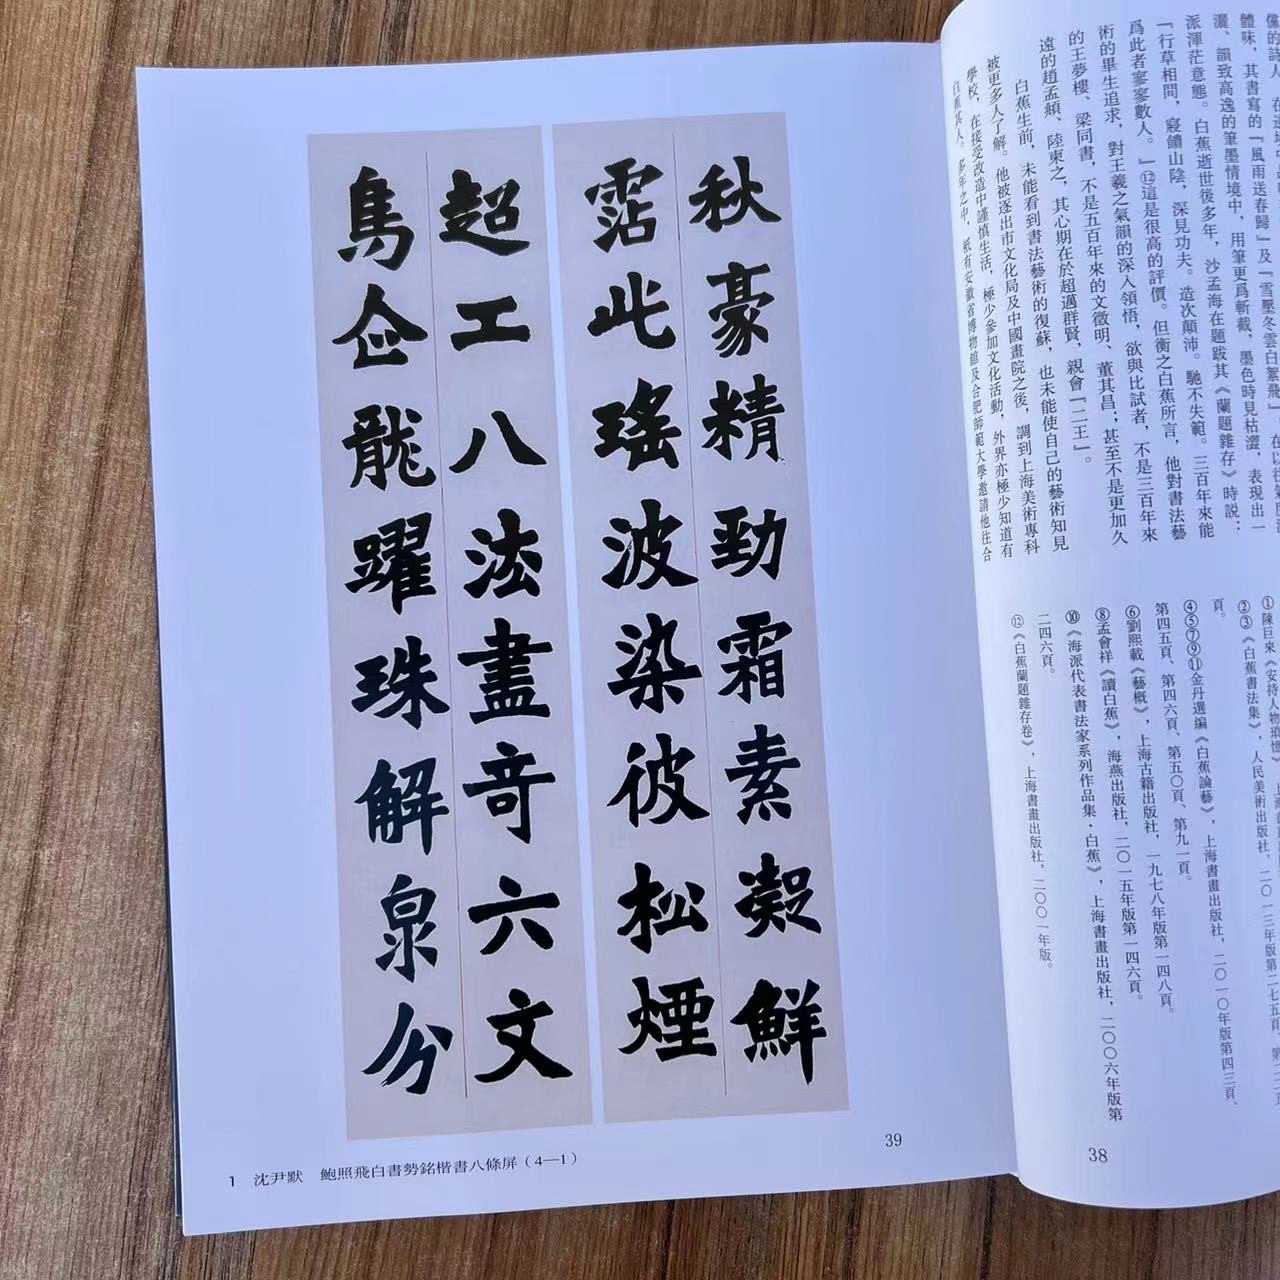 體味，其書寫的『風雨送春歸』及『雪壓冬雲白絮飛』，在以往
灑、韻致高逸的筆墨情境中，用筆更爲斬截，墨色時見枯澀，表現出一
派渾茫意態。白蕉逝世後多年，沙孟海在題跋其《蘭題雜存》時説：
『行草相間，寢饋山陰，深見功夫。造次顛沛。馳不失範。三百年來能
爲此者寥寥數人。』⑫這是很高的評價。但衡之白蕉所言，他對書法藝
術的畢生追求，對王羲之氣韻的深入領悟，欲與比試者，不是三百年來
的王夢樓、梁同書，不是五百年來的文徵明、董其昌；甚至不是更加久
遠的趙孟頫、陸柬之，其心期在於超邁群賢，親會『二王』。
白蕉生前，未能看到書法藝術的復蘇，也未能使自己的藝術知見
被更多人了解。他被逐出市文化局及中國畫院之後，調到上海美術專科
學校，在接受改造中謹慎生活，極少參加文化活動，外界亦極少知道有
白蕉其人。多年之中，衹有安徽省博物館及合肥師範大學邀請他往合
①陳巨來《安持人物瑣憶》，上海
②③《白蕉書法集》，人民美術出版社，二〇一三年版第二七五頁、第二
④⑤⑦⑨⑪金丹選編《白蕉論藝》，上海書畫出版社，二〇一〇年版第四三頁、
頁。
第四五頁、第四六頁、第五〇頁、第九一頁。
⑥劉熙載《藝概》，上海古籍出版社，一九七八年版第一四八頁。
⑧孟會祥《讀白蕉》，海燕出版社，二〇一五年版第一四六頁。
⑩《海派代表書法家系列作品集·白蕉》，上海書畫出版社，二〇〇六年版第
二四六頁。
⑫《白蕉蘭題雜存卷》，上海書畫出版社，二〇〇一年版。
38
秋豪精勁霜素凝鮮
霑此瑤波染彼松煙
超工八法盡奇六文
鳥企龍躍珠解泉分
39
1 沈尹默 鮑照飛白書勢銘楷書八條屏（4—1）